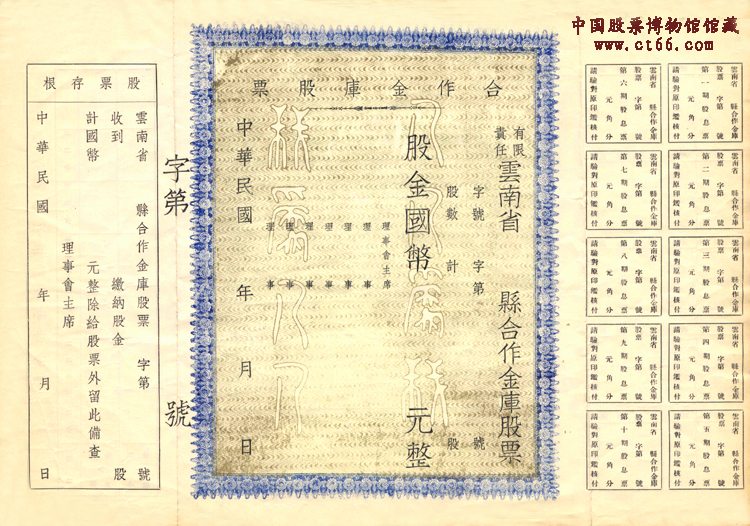 中国股票博物馆馆藏
www.ct66.com
雲南省 縣合作金庫
股票 字第 號
第一期股息票
元 角 分
請驗對原印鑑核付
雲南省 縣合作金庫
股票 字第 號
第二期股息票
元 角 分
請驗對原印鑑核付
雲南省 縣合作金庫
股票 字第 號
第三期股息票
元 角 分
請驗對原印鑑核付
雲南省 縣合作金庫
股票 字第 號
第四期股息票
元 角 分
請驗對原印鑑核付
雲南省 縣合作金庫
股票 字第 號
第五期股息票
元 角 分
請驗對原印鑑核付
雲南省 縣合作金庫
股票 字第 號
第六期股息票
元 角 分
請驗對原印鑑核付
雲南省 縣合作金庫
股票 字第 號
第七期股息票
元 角 分
請驗對原印鑑核付
雲南省 縣合作金庫
股票 字第 號
第八期股息票
元 角 分
請驗對原印鑑核付
雲南省 縣合作金庫
股票 字第 號
第九期股息票
元 角 分
請驗對原印鑑核付
雲南省 縣合作金庫
股票 字第 號
第十期股息票
元 角 分
請驗對原印鑑核付
合作金庫股票
有限責任雲南省 縣合作金庫股票
字號 字第 號
股數 計 股
股金國幣 元整
理事會主席
理事
理事
理事
理事
理事
理事
中華民國 年 月 日
字第 號
股票存根
雲南省 縣合作金庫股票 字第 號
收到 繳納股金 股
計國幣 元整除給股票外留此備查
理事會主席
中華民國 年 月 日